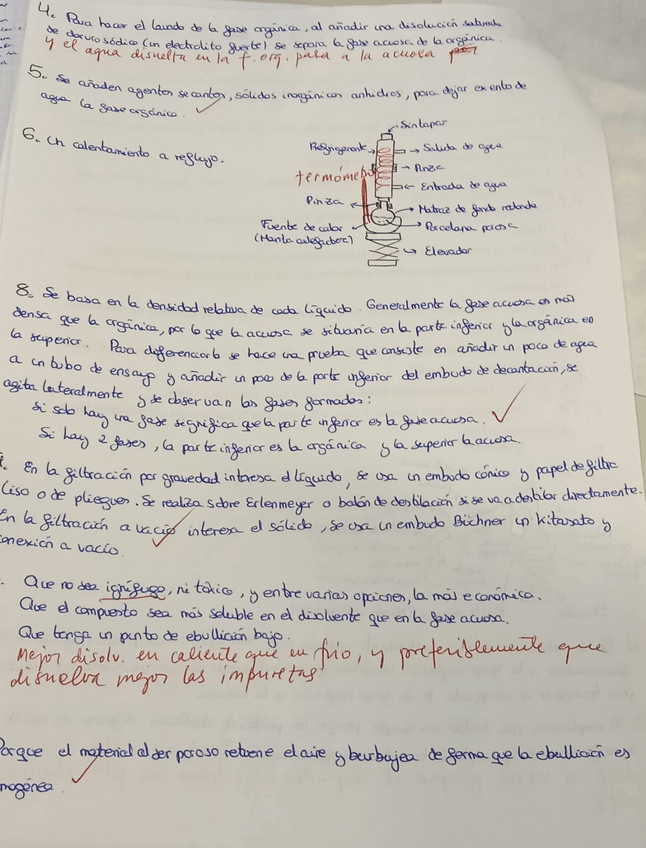 4. Para hacer el lavado de la fase orgánica, al añadir una disolución saturada
de cloruro sódico (un electrolito fuerte) se separa la fase acuosa de la orgánica.
y el agua disuelta en la f. org. pasa a la acuosa
5. Se añaden agentes secantes, sólidos inorgánicos anhidros, para dejar exento de
agua la fase orgánica.
6. Un calentamiento a reflujo.
Sin tapar
Refrigerante
Salida de agua
Pinza
termómetro
Entrada de agua
Pinza
Matraz de fondo redondo
Fuente de calor
(Manta calefactora)
Porcelana porosa
Elevador
8. Se basa en la densidad relativa de cada líquido. Generalmente la fase acuosa es más
densa que la orgánica, por lo que la acuosa se situaria en la parte inferior y la orgánica en
la superior. Para diferenciarlo se hace una prueba que consiste en añadir un poco de agua
a un tubo de ensayo y añadir un poco de la parte inferior del embudo de decantación, se
agita lateralmente y se observan las fases formadas:
Si solo hay una fase significa que la parte inferior es la fase acuosa.
Si hay 2 fases, la parte inferior es la orgánica y la superior la acuosa.
En la filtración por gravedad interesa el líquido, se usa un embudo cónico y papel de filtro
liso o de pliegues. Se realiza sobre Erlenmeyer o balón de destilación si se va a destilar directamente.
En la filtración a vacío interesa el sólido, se usa un embudo Büchner un kitasato y
conexión a vacío.
Que no sea ignífugo, ni tóxico, y entre varias opciones, la más económica.
Que el compuesto sea más soluble en el disolvente que en la fase acuosa.
Que tenga un punto de ebullición bajo.
Mejor disolv. en caliente que en frío, y preferiblemente que
disuelva mejor las impurezas
Porque el material al ser poroso retiene el aire y burbujea de forma que la ebullición es
mogénea.